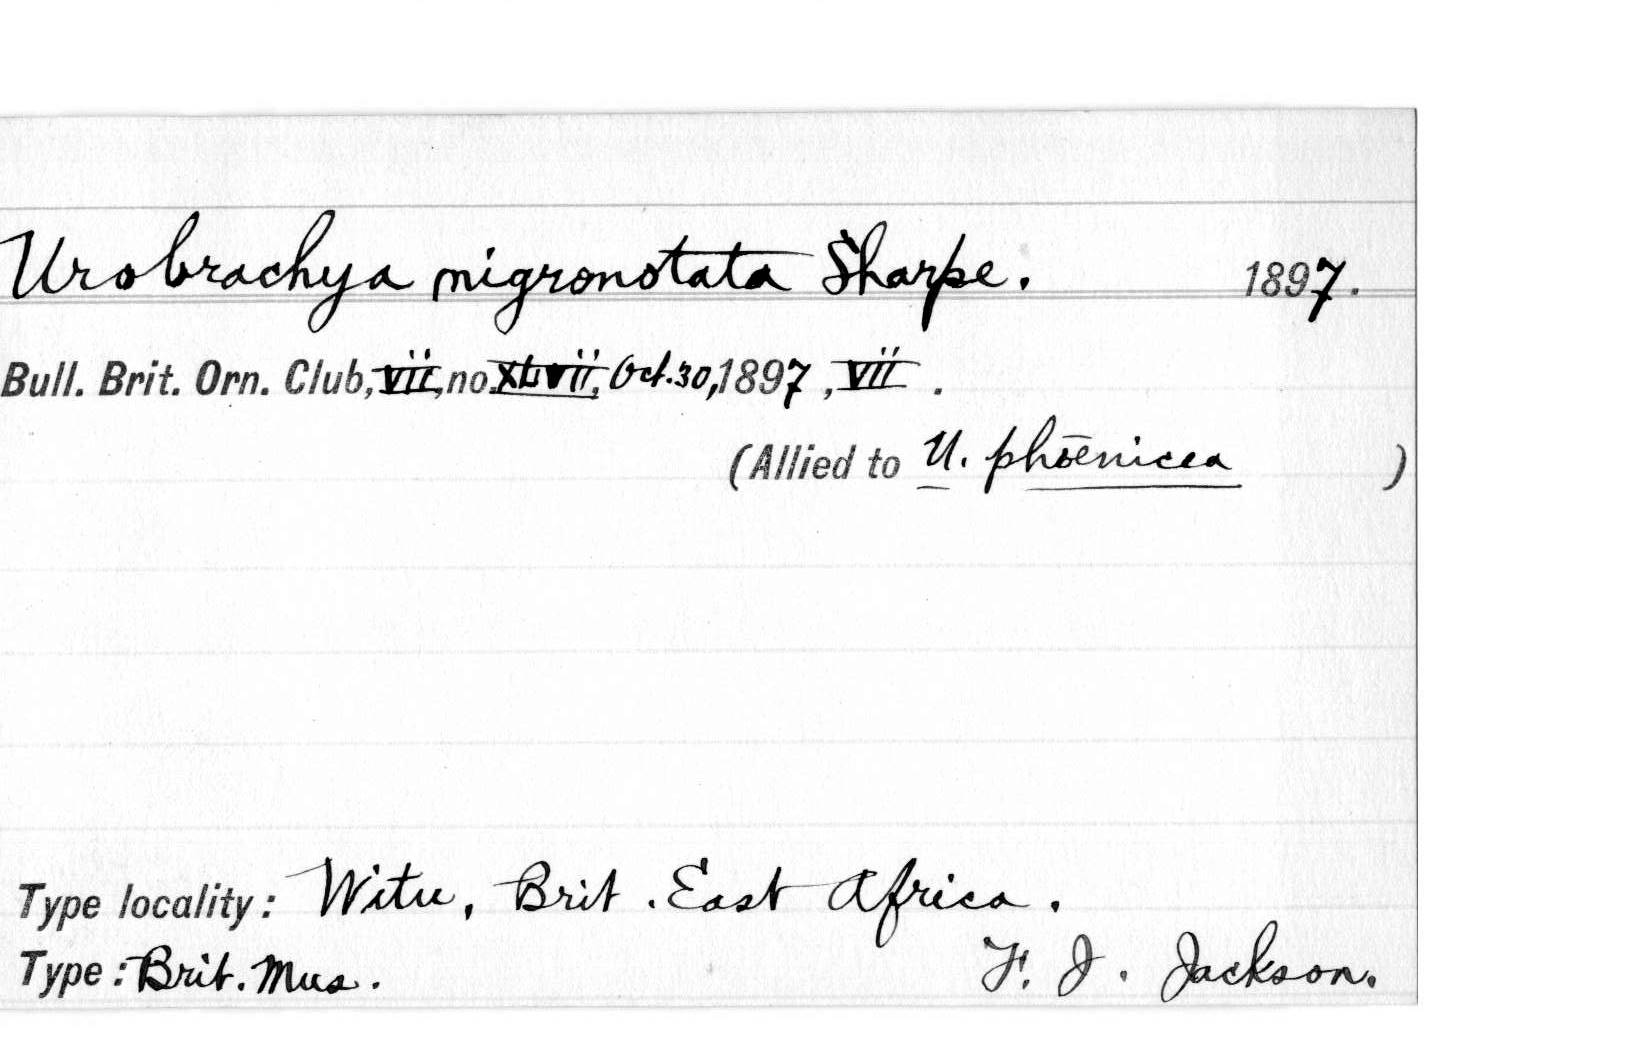 Urobrachya nigronotata Sharpe. 1897.
Bull. Brit. Orn. Club, vii, no. XLVII, Oct. 30, 1897, vii.
(Allied to U. phoenicea )
Type locality: Witu, Brit. East Africa.
Type: Brit. Mus. F. J. Jackson.